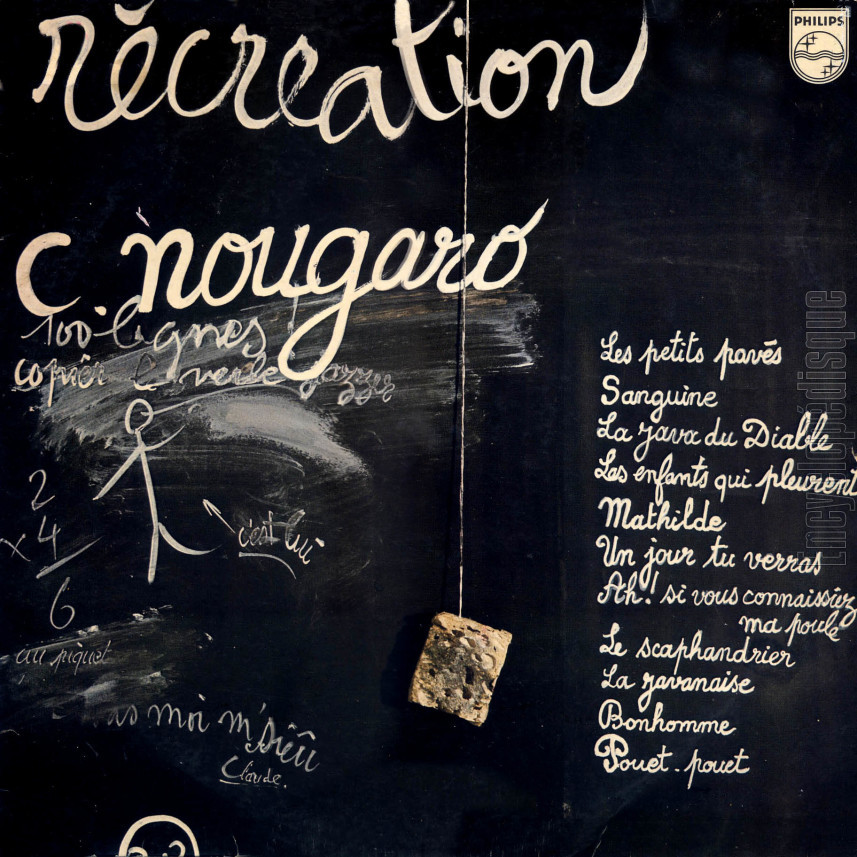 récréation
PHILIPS
c nougaro
100 lignes
copier le verbe jazzer
2
x 4
6
au piquet
c'est lui
pas moi m'sieu
Claude.
Les petits pavés
Sanguine
La java du Diable
Les enfants qui pleurent
Mathilde
Un jour tu verras
Ah! si vous connaissiez
ma poule
Le scaphandrier
La javanaise
Bonhomme
Pouet-pouet
Encyclopédisque